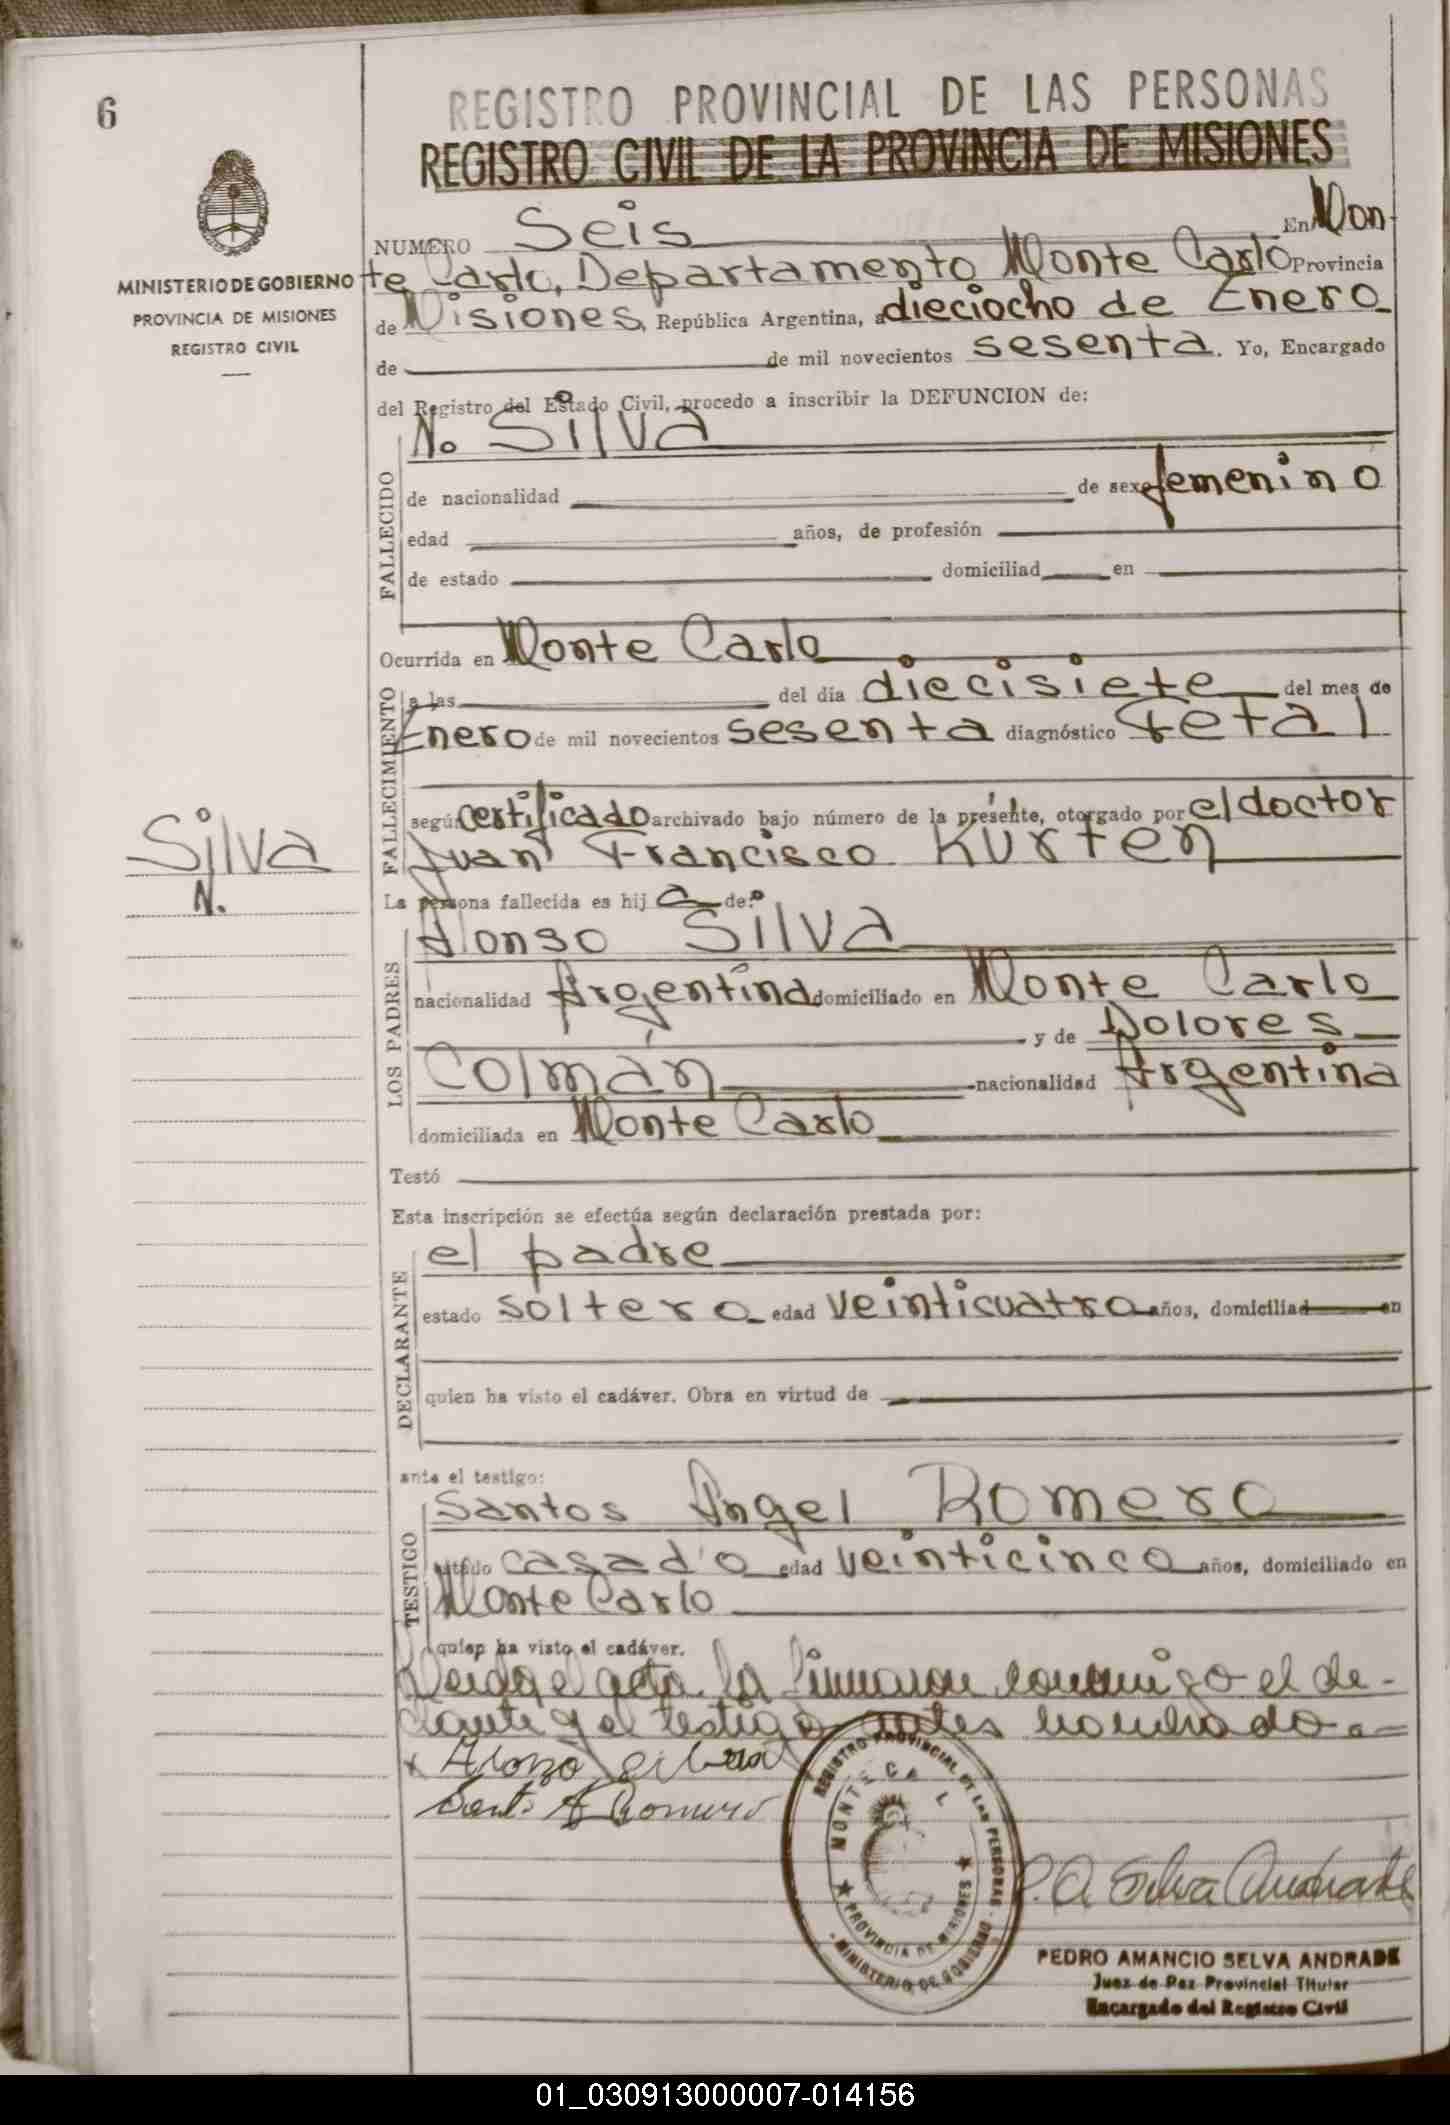 6
REGISTRO PROVINCIAL DE LAS PERSONAS
REGISTRO CIVIL DE LA PROVINCIA DE MISIONES
MINISTERIO DE GOBIERNO
PROVINCIA DE MISIONES
REGISTRO CIVIL
NUMERO Seis En Mon
te Carlo, Departamento Monte Carlo Provincia
de Misiones, República Argentina, a dieciocho de Enero
de de mil novecientos sesenta. Yo, Encargado
del Registro del Estado Civil, procedo a inscribir la DEFUNCION de:
N. Silva
FALLECIDO
de nacionalidad de sexo femenino
edad años, de profesión
de estado domiciliad en
Ocurrida en Monte Carlo
FALLECIMIENTO
a las del día diecisiete del mes de
Enero de mil novecientos sesenta diagnóstico Fetal
según certificado archivado bajo número de la presente, otorgado por el doctor
Juan Francisco Kurten
Silva
N.
La persona fallecida es hija de:
LOS PADRES
Alonso Silva
nacionalidad Argentina domiciliado en Monte Carlo
y de Dolores
Colmán nacionalidad Argentina
domiciliada en Monte Carlo
Testó
Esta inscripción se efectúa según declaración prestada por:
DECLARANTE
el padre
estado soltero edad veinticuatro años, domiciliad en
quien ha visto el cadáver. Obra en virtud de
ante el testigo:
TESTIGO
Santos Angel Romero
estado casado edad veinticinco años, domiciliado en
Monte Carlo
quien ha visto el cadáver.
Leida el acta la firmaron conmigo el de-
clante y el testigo antes nombrado.=
x Alonzo Silva
Sant. A Romero
REGISTRO PROVINCIAL DE LAS PERSONAS
MONTE CARLO
PROVINCIA DE MISIONES
MINISTERIO DE GOBIERNO
P. A. Selva Andrade
PEDRO AMANCIO SELVA ANDRADE
Juez de Paz Provincial Titular
Encargado del Registro Civil
01_030913000007-014156